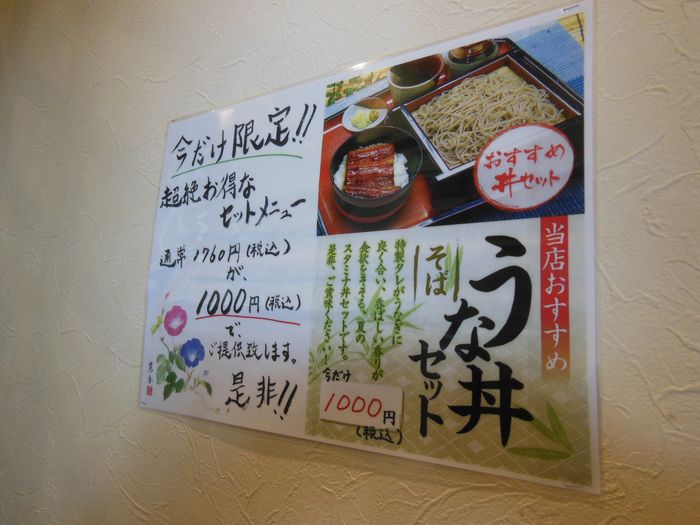 今だけ限定!!
超絶お得な
セットメニュー
通常1760円(税込)
が、
1000円(税込)
で、
ご提供致します。
是非!!
おすすめ
丼セット
当店おすすめ
うな丼
そば
セット
特製タレがうなぎに
良く合い、香ばしい香りが
食欲をそそる、夏の
スタミナ丼セットです。
是非、ご賞味ください!
今だけ
1000円
(税込)